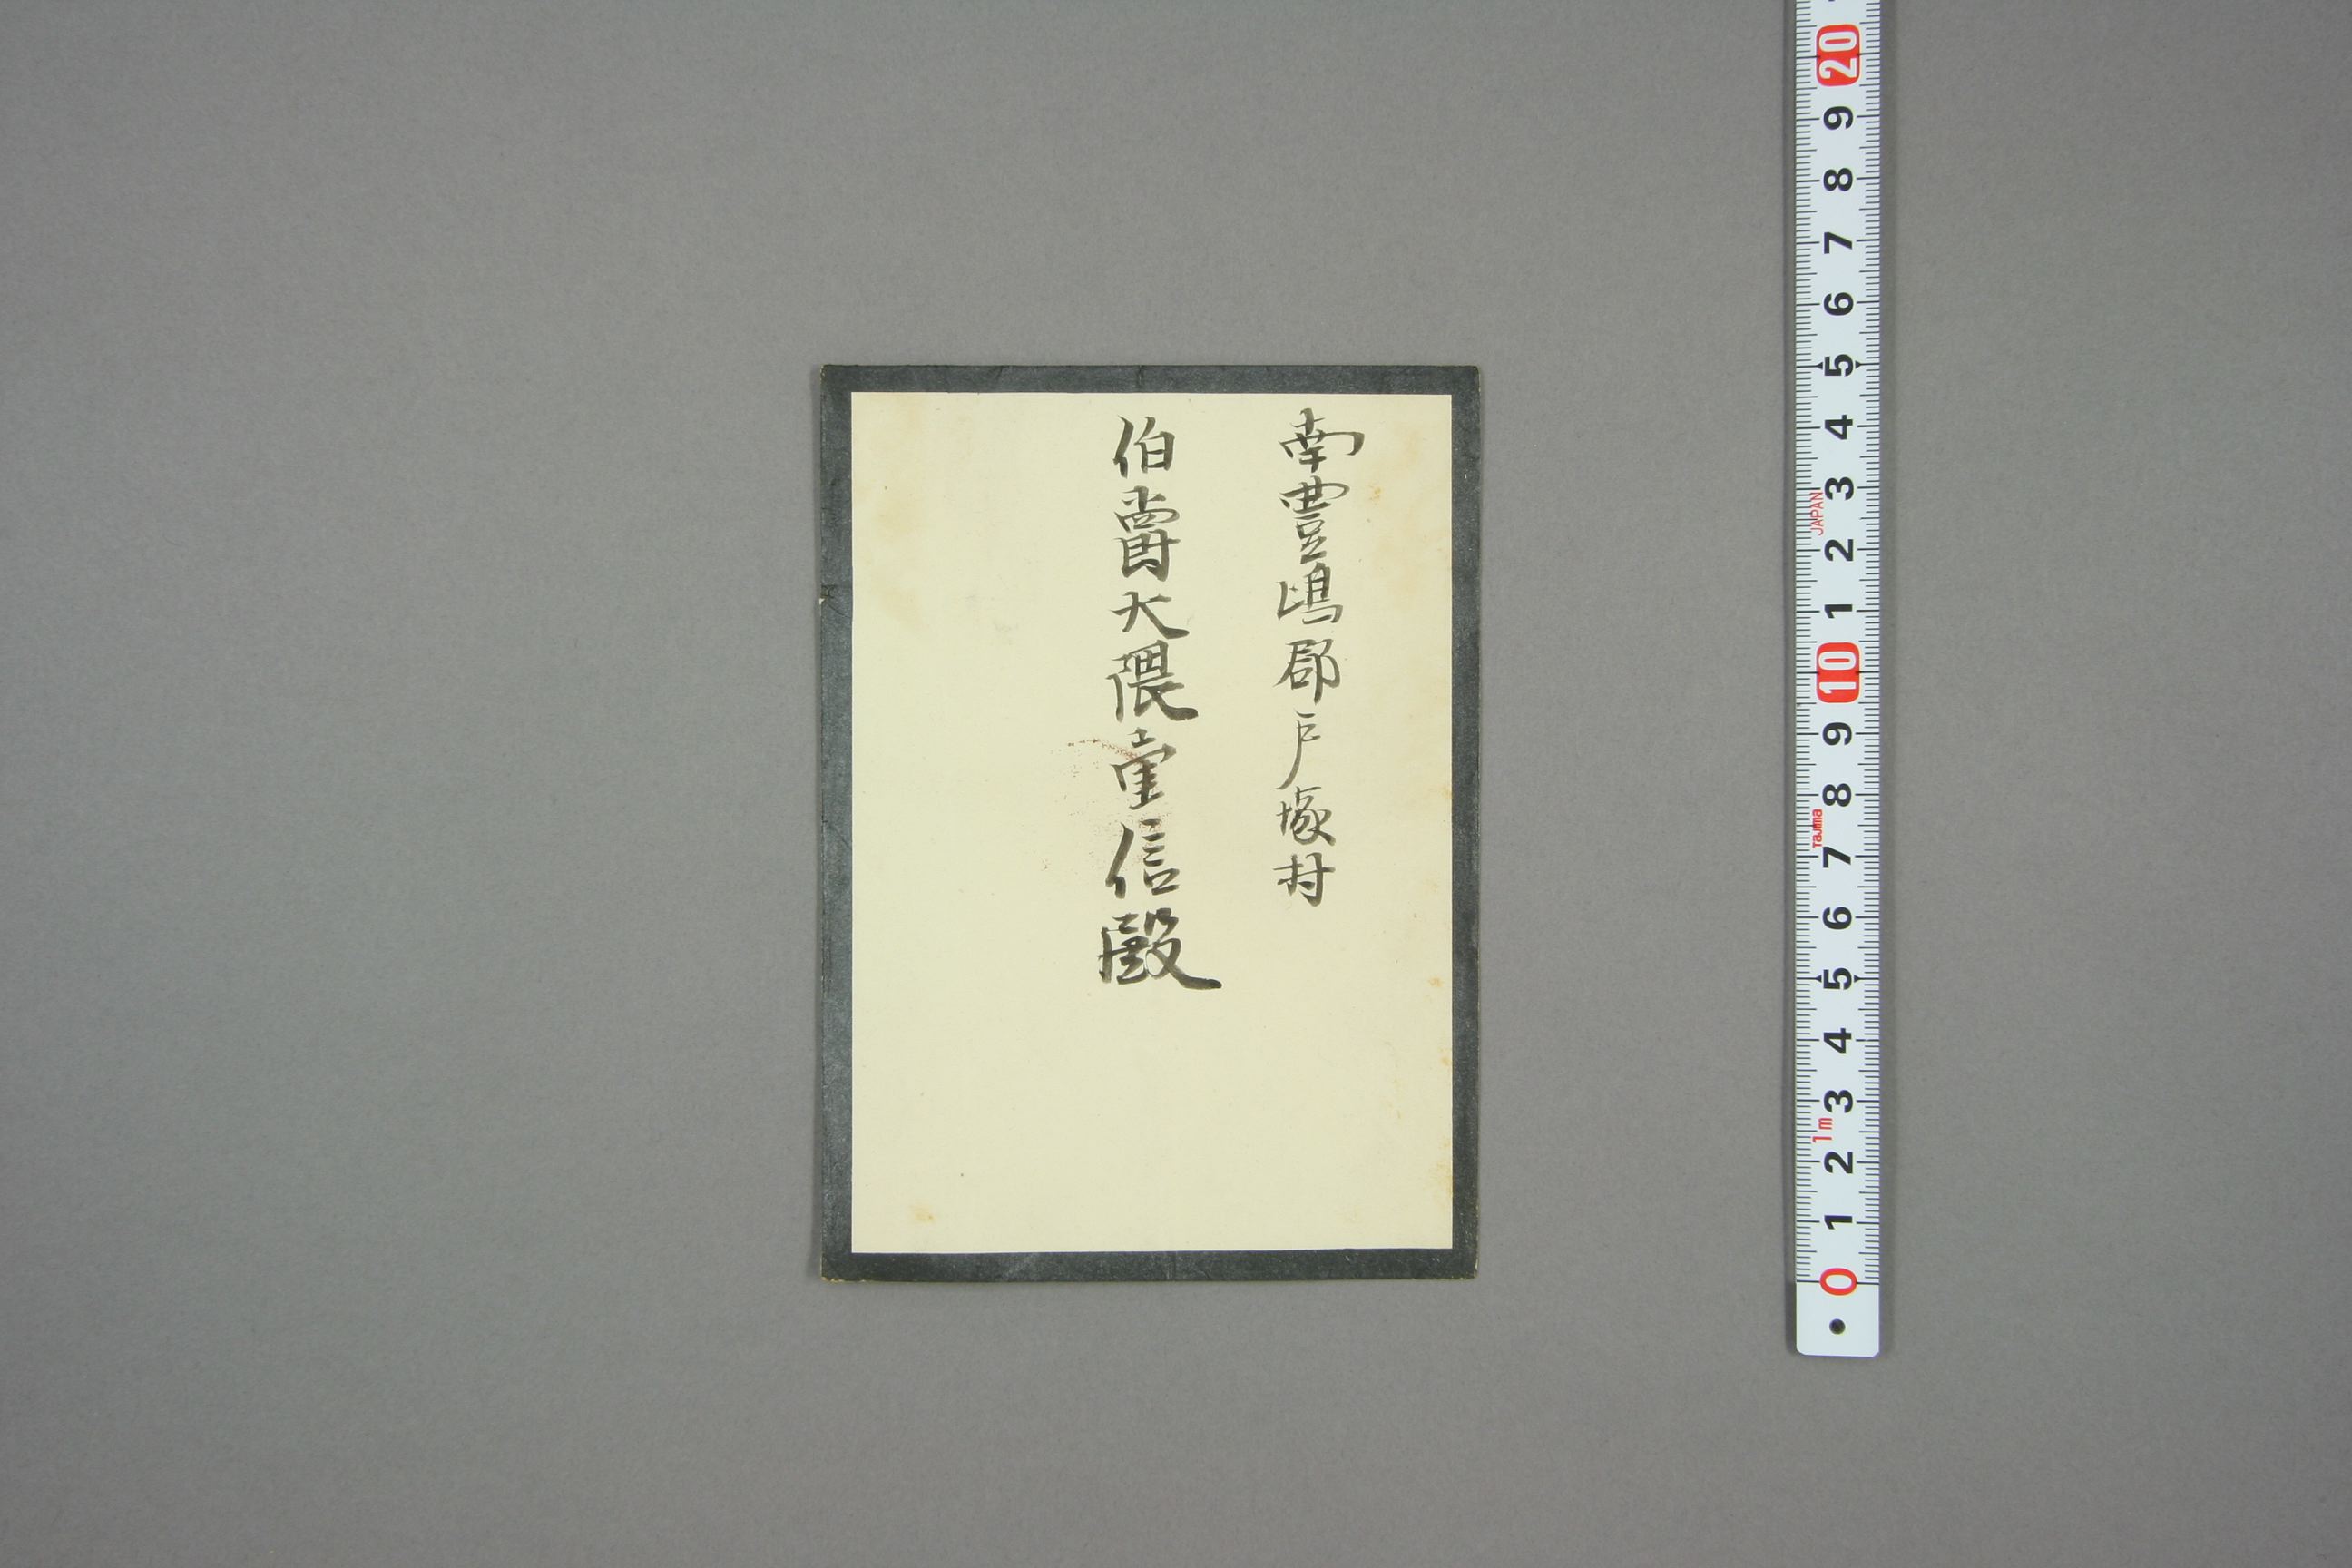 南豊嶋郡戸塚村
伯爵大隈重信殿
20
9
8
7
6
5
4
3
JAPAN
2
1
10
9
8
Tajima
7
6
5
4
3
1m
2
1
0